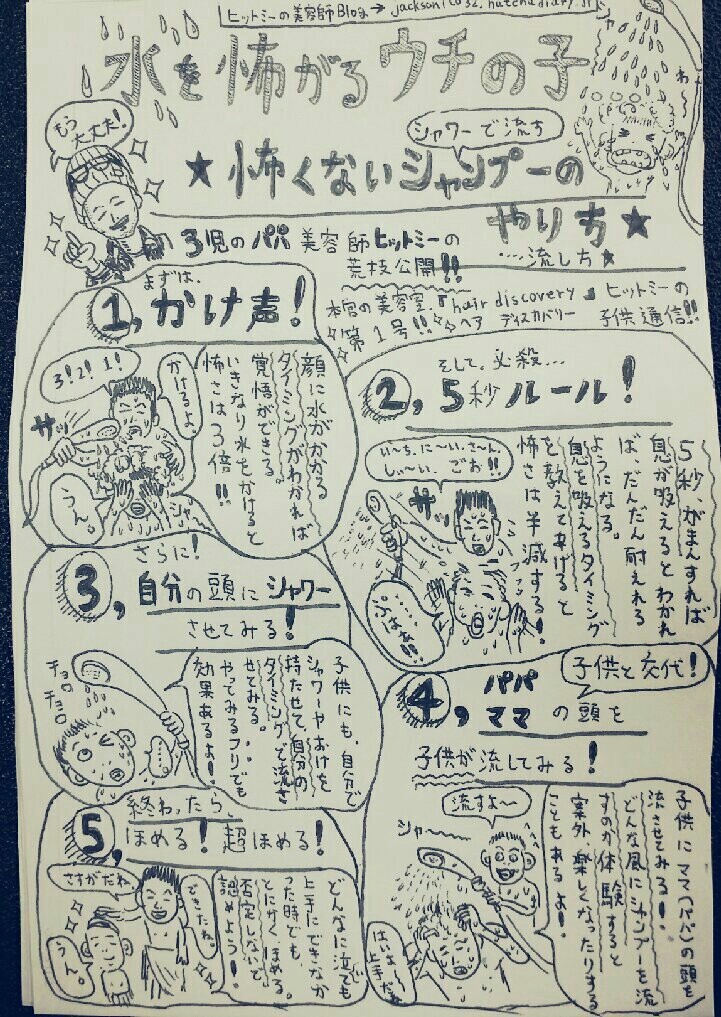 ヒットミーの美容師Blog→jacksonico32.hatenadiary.jp
水を怖がるウチの子
わ〜
もう
大丈夫!
シャワーで流す
★怖くないシャンプーの
やり方★
‥‥流し方★
3児のパパ美容師ヒットミーの
荒技公開!!
本宮の美容室『hair discovery』ヒットミーの
ヘア ディスカバリー
第1号!!
子供通信!!
まずは、
1,かけ声!
3!2!1!
かけるよ
ザッ
うん。
シャー
顔に水がかかる
タイミングがわかれば
覚悟ができる。
いきなり水をかけると
怖さは3倍!!
そして、必殺…
2,5秒ルール!
い〜ち、に〜い、さ〜ん、
し〜い、ごお!!
ザッ
……
ぷはぁ!!
5秒、がまんすれば
息が吸えるとわかれ
ば、だんだん耐えれる
ようになる。
息を吸えるタイミング
を教えてあげると
怖さは半減する!
さらに!
3,自分の頭にシャワー
させてみる!
チョロ
チョロ
子供にも、自分で
シャワーやおけを
持たせて、自分の
タイミングで流さ
せてみる。
やってみるフリでも
効果あるよ!
子供と交代!
4,パパ
ママの頭を
子供が流してみる!
流すよ〜
シャ〜
はいよ〜
上手だね
子供にママ(パパ)の頭を
流させてみる!
どんな風にシャンプーを流
すのか体験すると
案外、楽しくなったりする
こともあるよ!
終わったら、
5,ほめる!超ほめる!
さすがだね
できたね。
うん。
どんなに泣いても
上手にできなか
った時でも、
とにかくほめる。
否定しないで
認めよう!